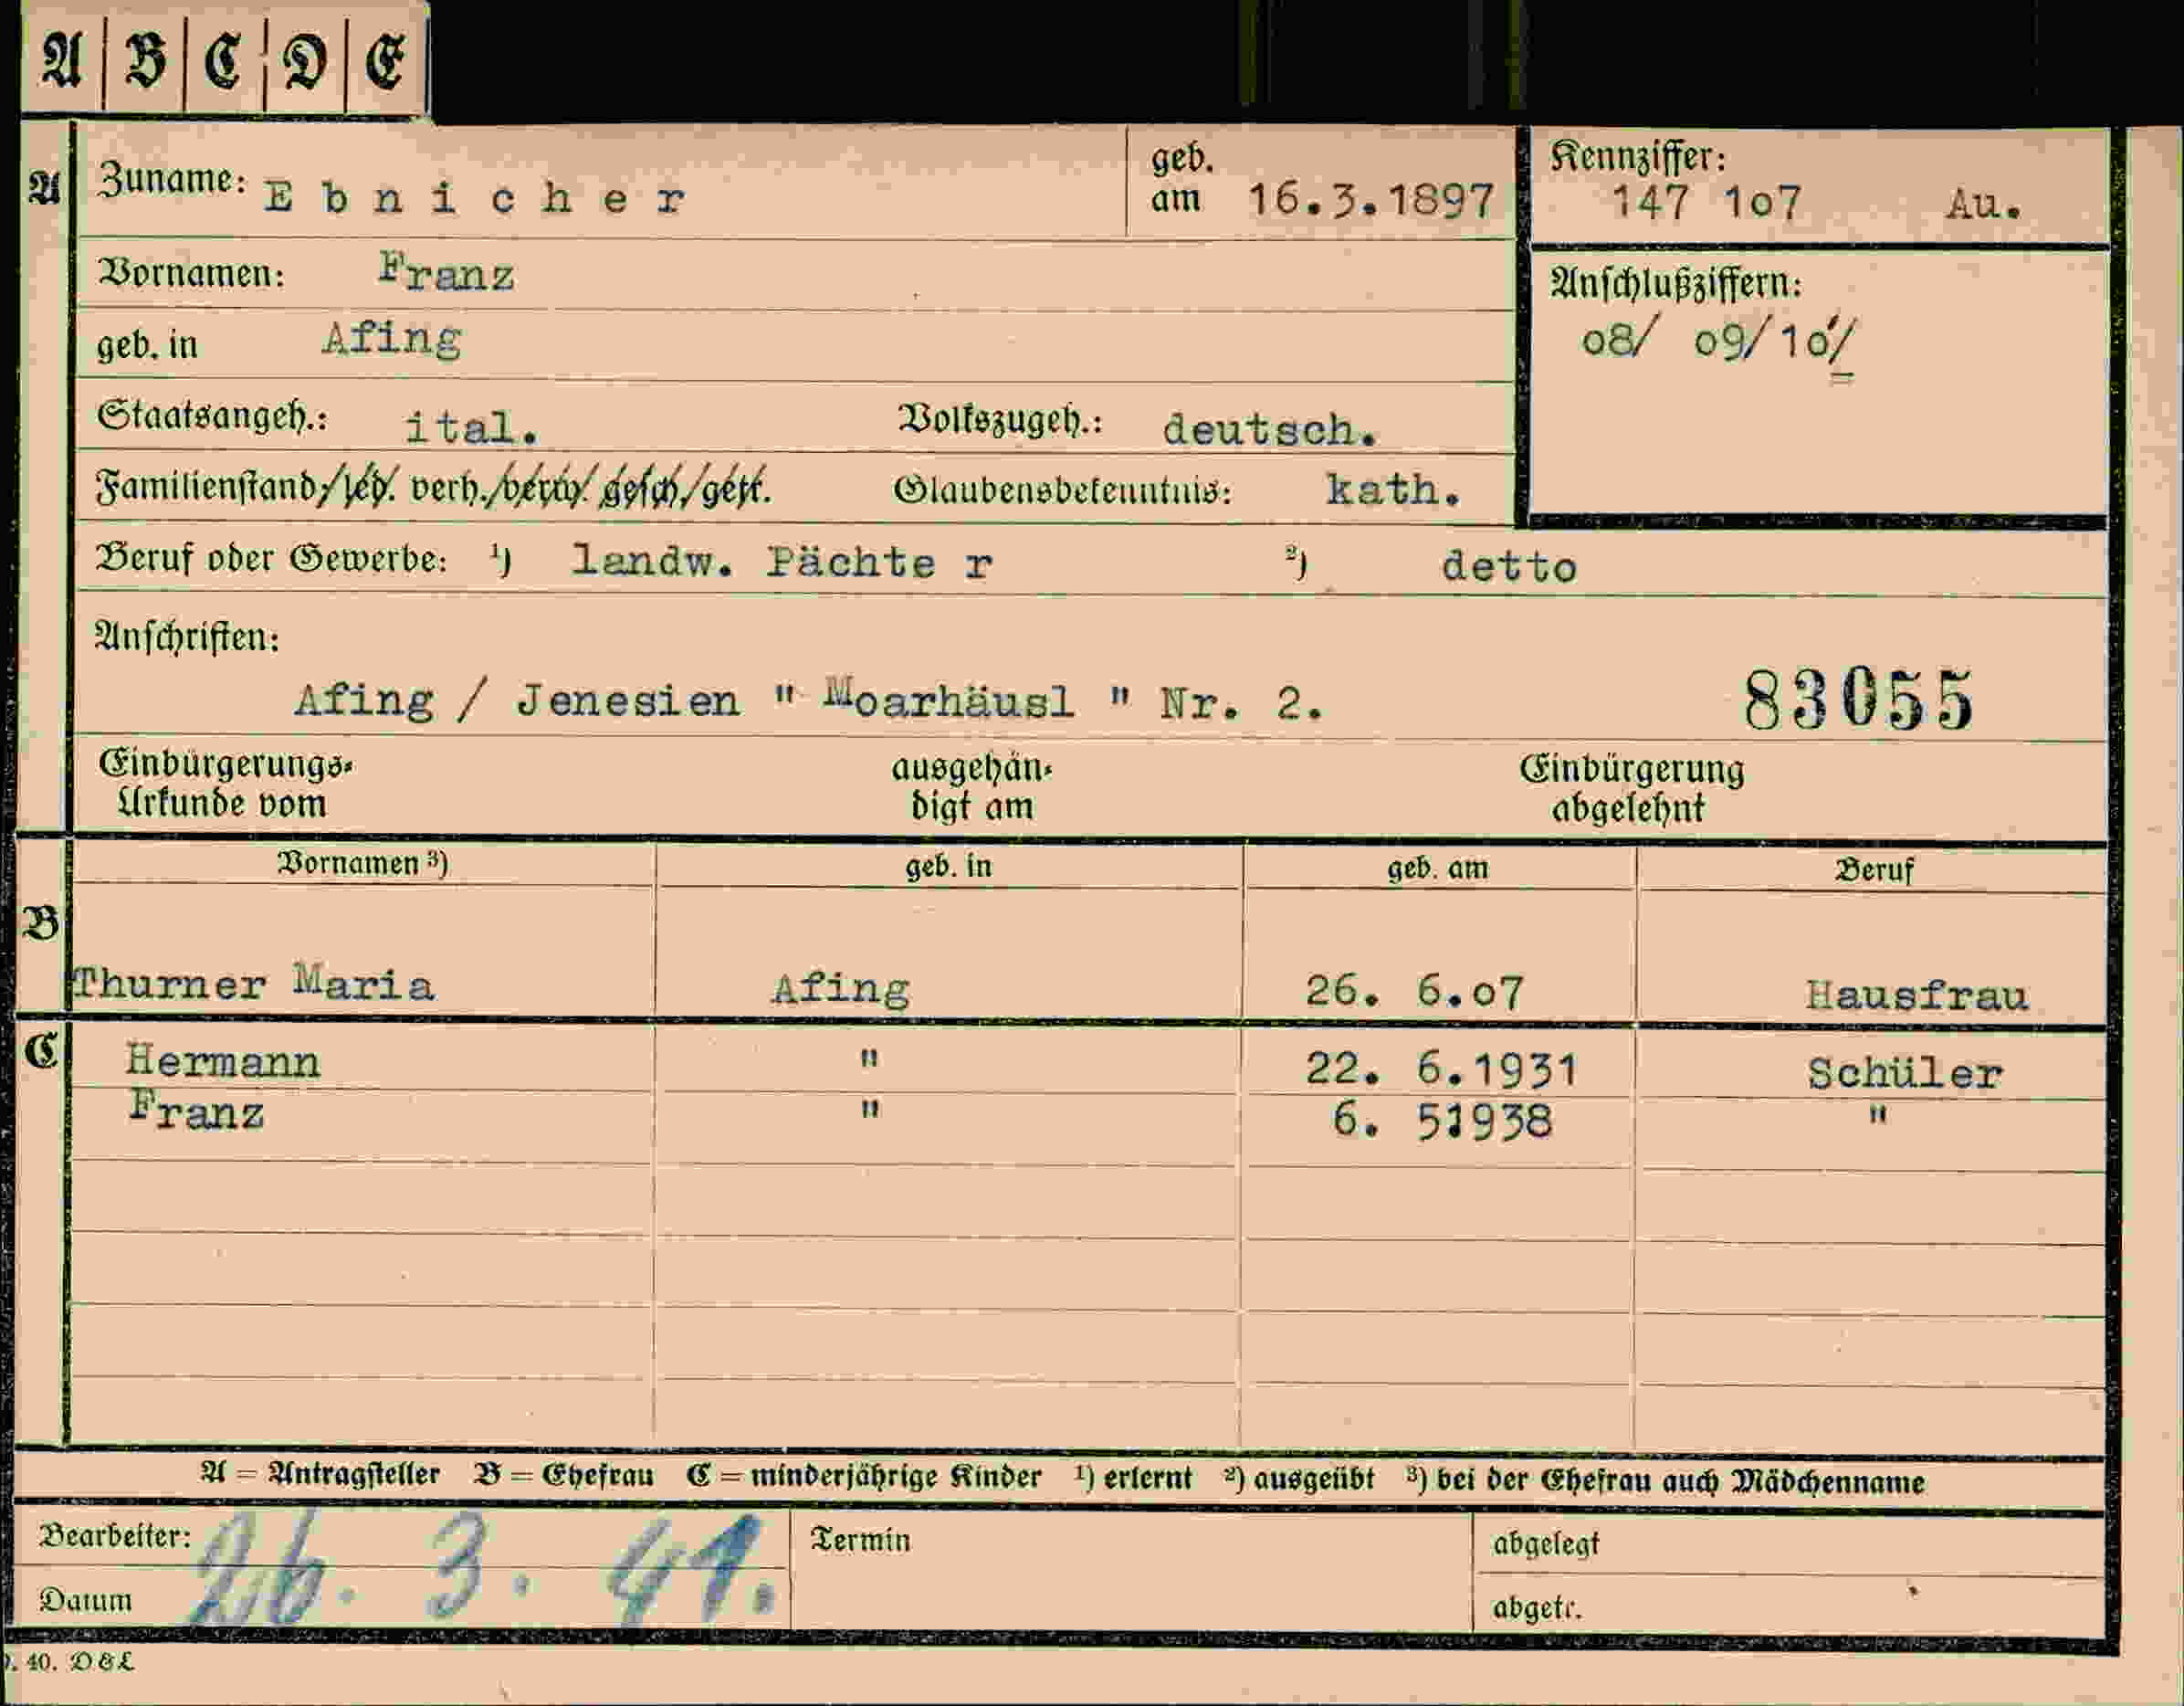 A B C D E
A Zuname: Ebnicher geb. am 16.3.1897 Kennziffer: 147 1o7 Au.
Vornamen: Franz
geb. in Afing
Anschlußziffern:
o8/ o9/1o/
Staatsangeh.: ital. Volkszugeh.: deutsch.
Familienstand: led. verh. verw. gesch. getr. Glaubensbekenntnis: kath.
Beruf oder Gewerbe: ¹) landw. Pächte r ²) detto
Anschriften:
Afing / Jenesien " Moarhäusl " Nr. 2. 83055
Einbürgerungs-Urkunde vom ausgehändigt am Einbürgerung abgelehnt
Vornamen ³) geb. in geb. am Beruf
B
Thurner Maria Afing 26. 6.o7 Hausfrau
C Hermann " 22. 6.1931 Schüler
Franz " 6. 5.1938 "
A = Antragsteller B = Ehefrau C = minderjährige Kinder ¹) erlernt ²) ausgeübt ³) bei der Ehefrau auch Mädchenname
Bearbeiter: Termin abgelegt
26. 3. 41.
Datum abgetr.
40. D & L